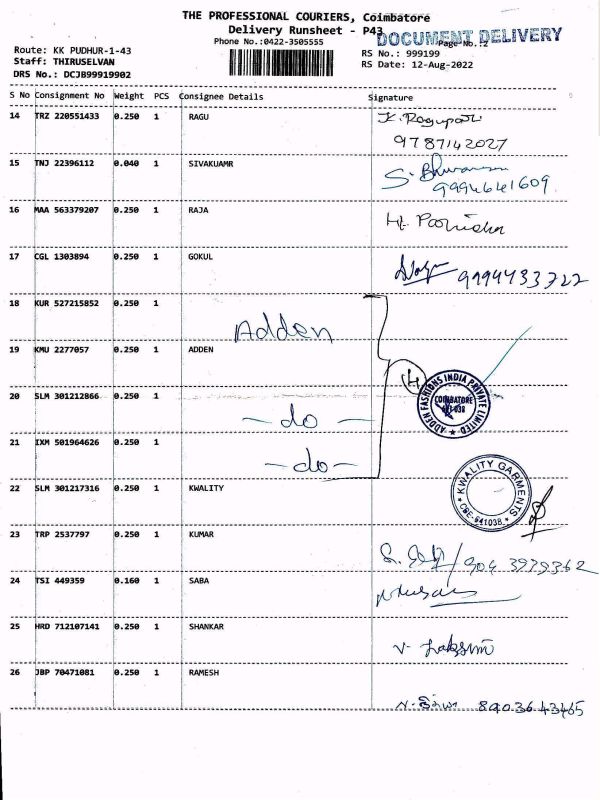 THE PROFESSIONAL COURIERS, Coimbatore
Delivery Runsheet - P43
DOCUMENT DELIVERY
Phone No.:0422-3505555
Page No.:2
Route: KK PUDHUR-1-43
RS No.: 999199
Staff: THIRUSELVAN
RS Date: 12-Aug-2022
DRS No.: DCJB99919902
S No Consignment No Weight PCS Consignee Details Signature
14 TRZ 220551433 0.250 1 RAGU
K. Ragupathi
9787142027
15 TNJ 22396112 0.040 1 SIVAKUAMR
9994641609
16 MAA 563379207 0.250 1 RAJA
17 CGL 1303894 0.250 1 GOKUL
9994733722
18 KUR 527215852 0.250 1
Adden
19 KMU 2277057 0.250 1 ADDEN
4
ADDEN FASHIONS INDIA PRIVATE LIMITED
COIMBATORE
641 038
20 SLM 301212866 0.250 1
- do -
21 IXM 501964626 0.250 1
- do -
22 SLM 301217316 0.250 1 KWALITY
KWALITY GARMENTS
CBE-641038
23 TRP 2537797 0.250 1 KUMAR
24 TSI 449359 0.160 1 SABA
25 HRD 712107141 0.250 1 SHANKAR
26 JBP 70471081 0.250 1 RAMESH